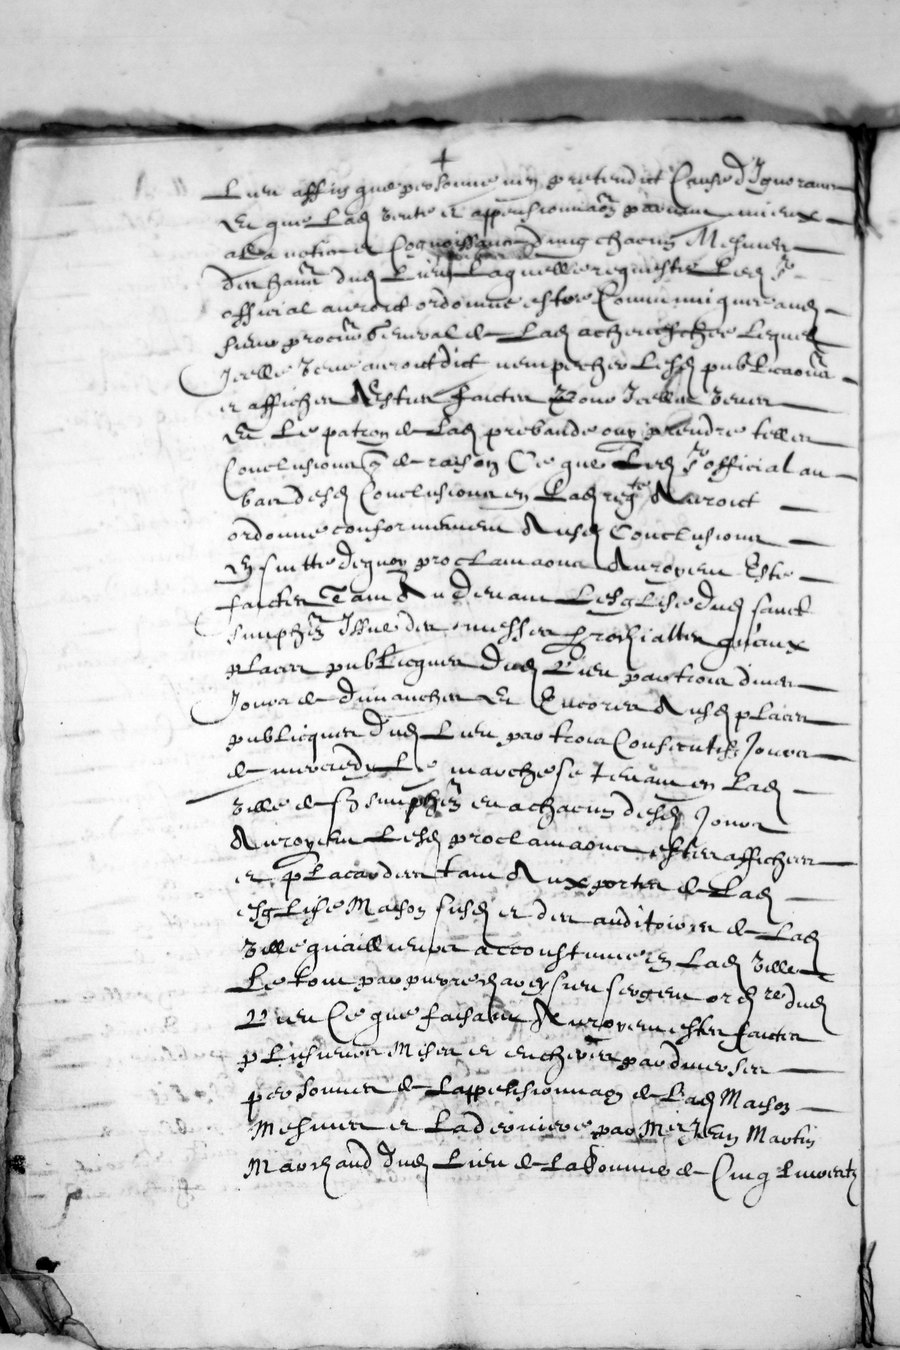 +
Lieu affin que personne nen pretendict Cause d'Ignorance
Et que Lad vente et appensionnaon parvint mieux
a La notice et Cognoissance dung chacun Mesmes
des hans dud Lieu Laquelle requeste Led Sr
official auroict ordonne estre Communiquee aud
sieur procur General de Lad Lequel
Icelle veue auroict dict nempecher Lesd publicaons
et affiches Estre faictes pour Icelles veues
Et Le patron de Lad prebande ouy prendre telles
Conclusions q de raison Ce que Led Sr official au
bas desd Conclusions en Lad reqte Auroict
ordonne conformement Ausd Conclusions
En suitte dequoy proclamaons Auroyent Este
faictes Tant Au devant Lesglise dud sainct
simphn Issue des messes parrochialles qu'aux
places publicques dud Lieu par trois divers
Jours de dimanches Et Encores Ausd places
publicques dud Lieu par trois Consecutifs Jours
de mercredy Le marche se tenant en Lad
ville de St simphn et a chacun desd Jours
Auroyent Lesd proclamaons estees affichees
et placardees tant Aux portes de Lad
esglise Maison susd et des auditoires de Lad
ville quailleurs accoustumes en Lad ville
Le tout par pierre sergent ordre dud
Lieu Ce que faisant Auroyent estes faictes
plusieurs Mises et encheres par diverses
personnes de Lappensionnaon de Lad Maison
Mesmes et La derniere par Mre Jean Martin
Marchand dud Lieu de La somme de Cinq Livres